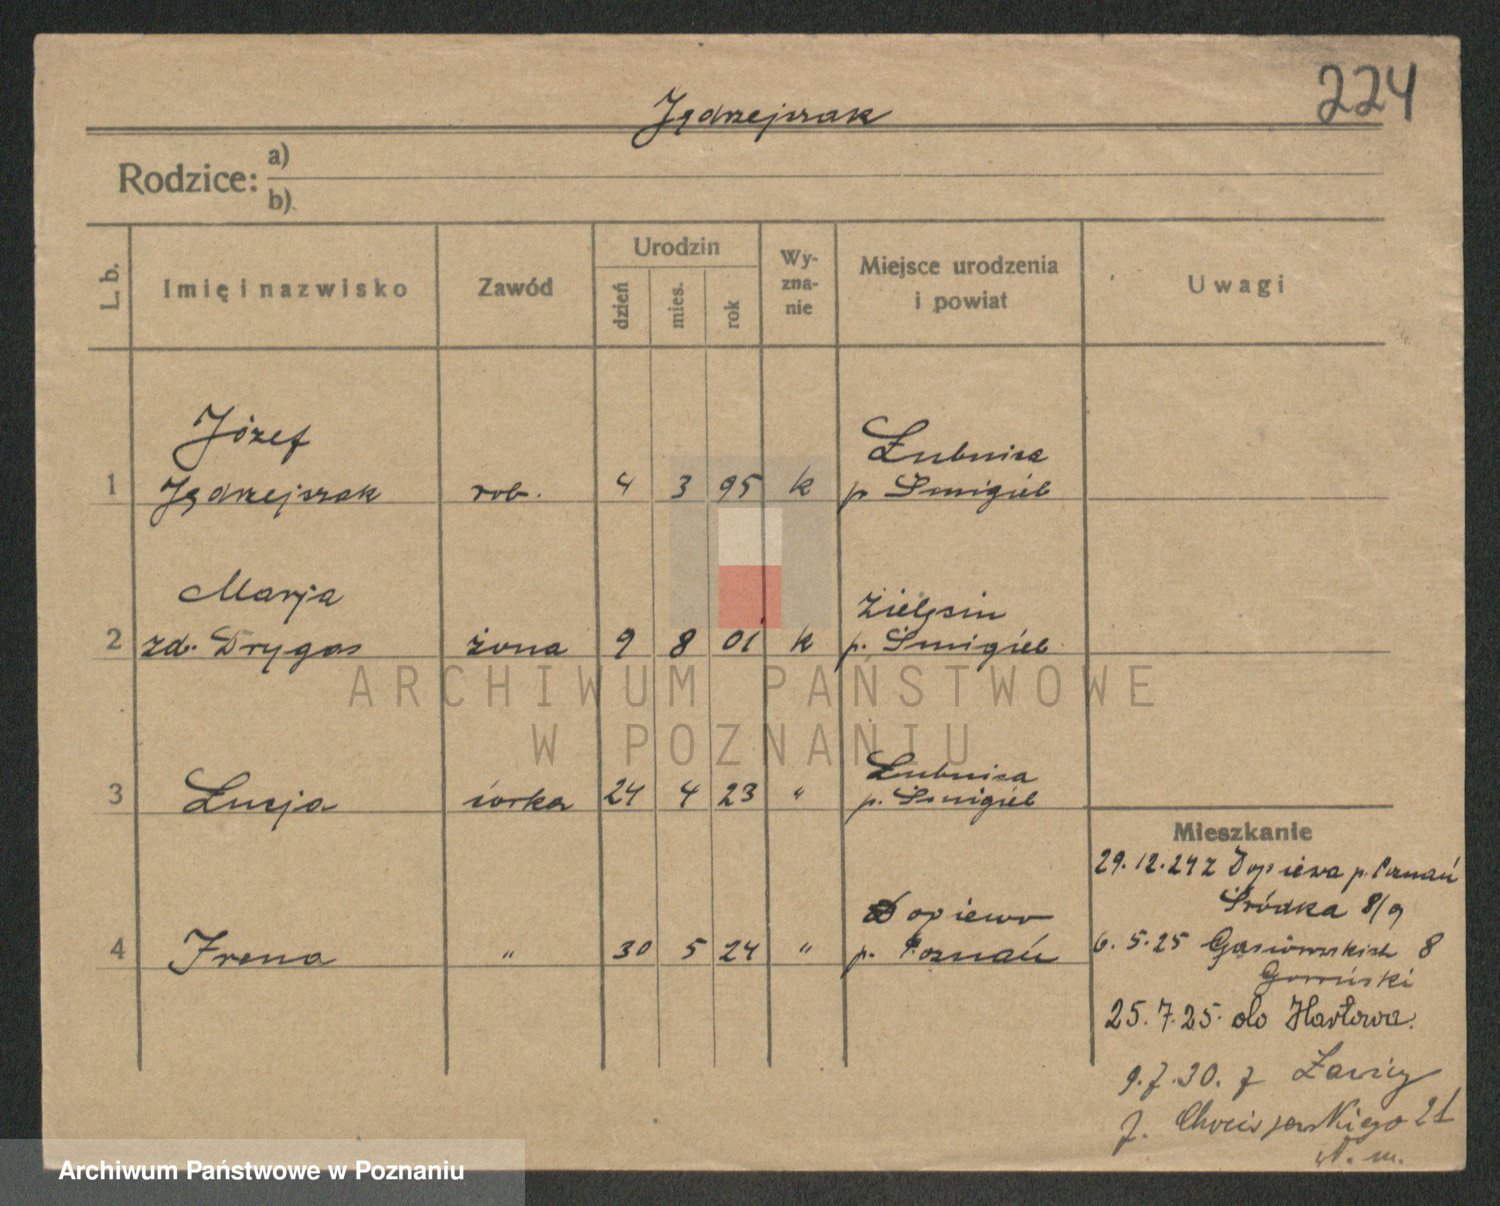 224
Jędrzejczak
Rodzice: a)
b)
L. b.
Imię i nazwisko
Zawód
Urodzin
dzień
mies.
rok
Wy-
zna-
nie
Miejsce urodzenia
i powiat
Uwagi
Józef
1 Jędrzejczak rob. 4 3 95 k
Łubnica
p Śmigiel
Marja
2 zd. Drygas żona 9 8 01 k
p. Śmigiel
ARCHIWUM PAŃSTWOWE
W POZNANIU
3 Łucja córka 24 4 23 "
Łubnica
p. Śmigiel
4 Irena " 30 5 24 "
Dopiewo
p. Poznań
Mieszkanie
29.12.24 z Dopiewa p. Poznań
Śródka 8/9
6.5.25 Gąsiorowskich 8
25.7.25. do
9.7.30. z Ławicy
21
Archiwum Państwowe w Poznaniu